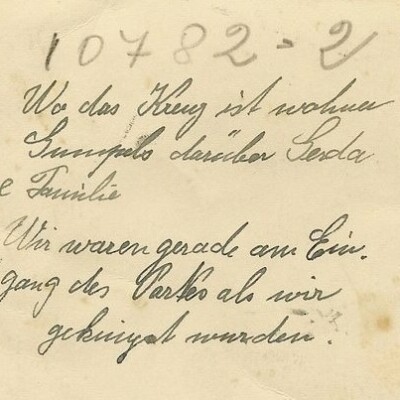 10782-2
Wo das Kreuz ist wohnen
Gumpels darüber Gerda
e Familie
Wir waren gerade am Ein-
gang des Parkes als wir
geknipst wurden.